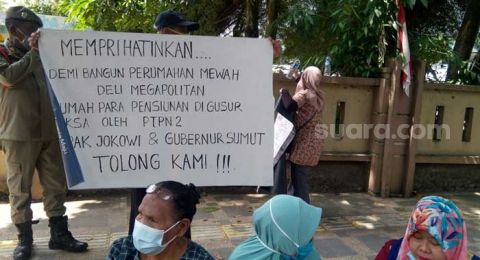 MEMPRIHATINKAN....
DEMI BANGUN PERUMAHAN MEWAH
DELI MEGAPOLITAN
UMAH PARA PENSIUNAN DI GUSUR
KSA OLEH PTPN2
AK JOKOWI & GUBERNUR SUMUT
TOLONG KAMI !!!
suara.com